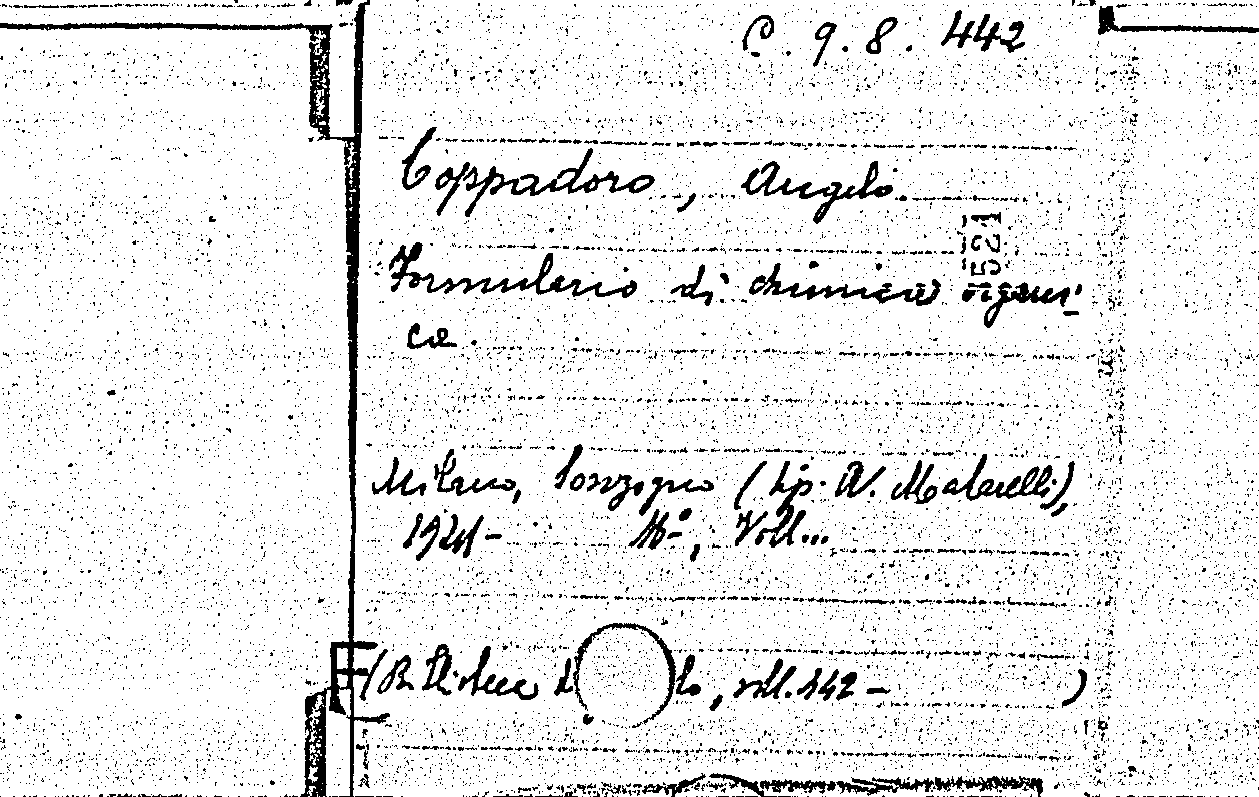 C. 9. 8. 442
Coppadoro, Angelo.
1521
Formulario di chimica organi-
ca.
Milano, Sonzogno (tip. A. Matarelli),
192 - 16°, Voll...
(Biblioteca d lo, voll. 442 - )